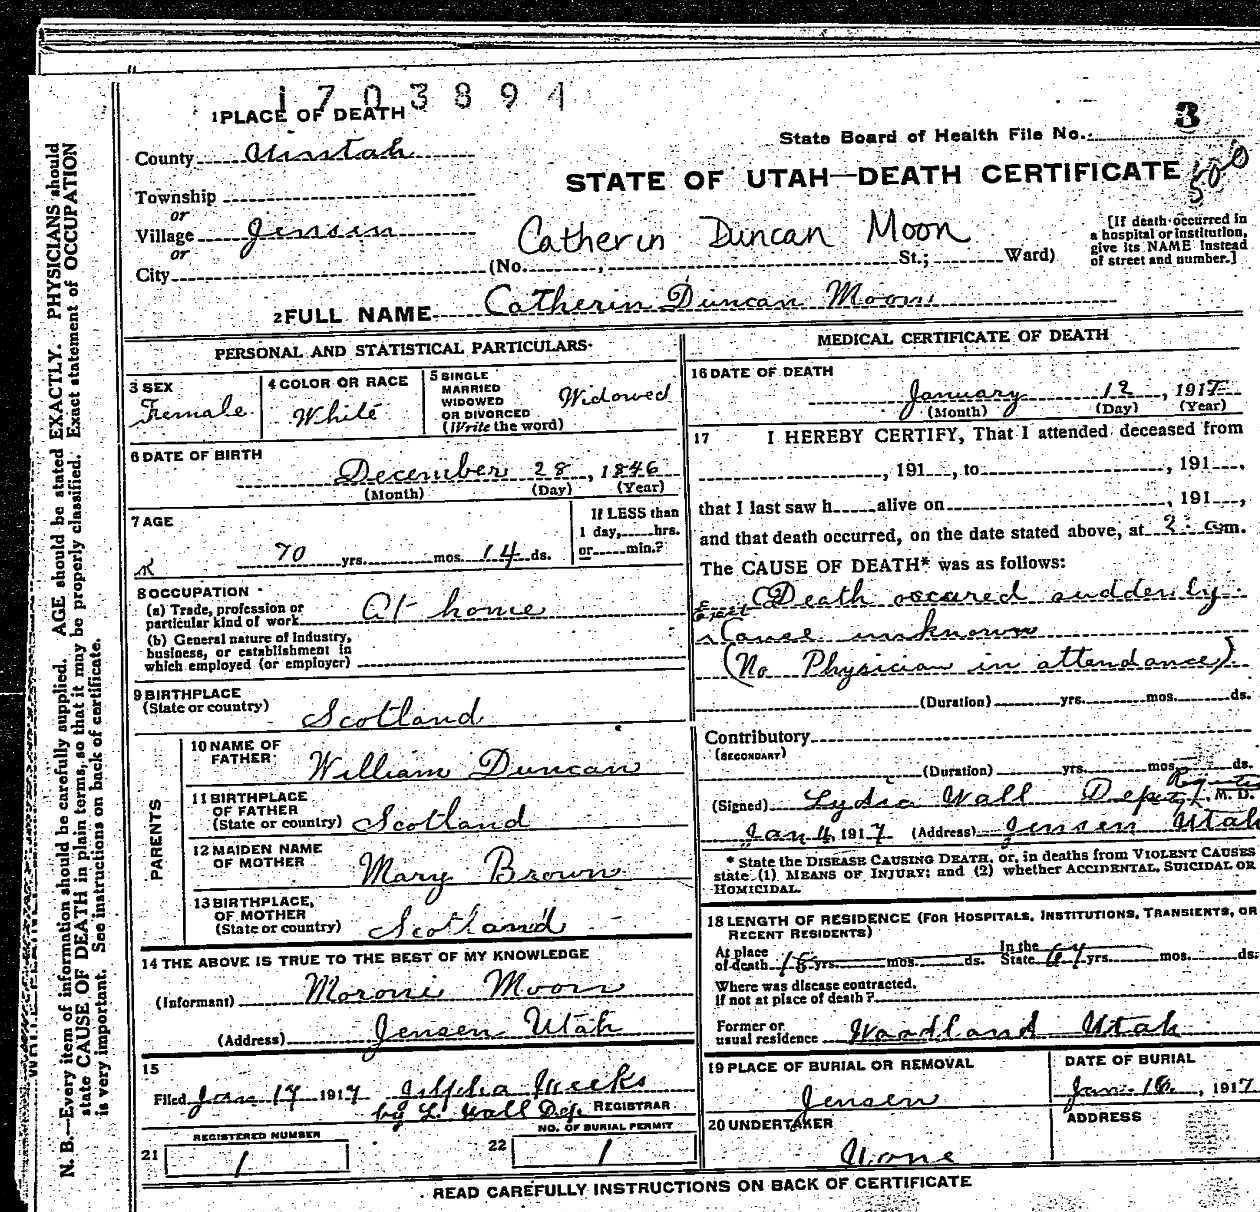 1703894
1 PLACE OF DEATH
State Board of Health File No. 3
County Uintah
STATE OF UTAH—DEATH CERTIFICATE
500
Township
or
Village Jensen
or
City
Catherin Duncan Moon
(No. , St.; Ward)
[If death occurred in
a hospital or institution,
give its NAME instead
of street and number.]
2 FULL NAME Catherin Duncan Moon
PERSONAL AND STATISTICAL PARTICULARS
3 SEX
Female
4 COLOR OR RACE
White
5 SINGLE
MARRIED
WIDOWED
OR DIVORCED
(Write the word)
Widowed
6 DATE OF BIRTH
December 28, 1846
(Month) (Day) (Year)
7 AGE
70 yrs. mos. 14 ds.
If LESS than
1 day, hrs.
or min.?
8 OCCUPATION
(a) Trade, profession or
particular kind of work At home
(b) General nature of Industry,
business, or establishment in
which employed (or employer)
9 BIRTHPLACE
(State or country) Scotland
PARENTS
10 NAME OF
FATHER William Duncan
11 BIRTHPLACE
OF FATHER
(State or country) Scotland
12 MAIDEN NAME
OF MOTHER Mary Brown
13 BIRTHPLACE,
OF MOTHER
(State or country) Scotland
14 THE ABOVE IS TRUE TO THE BEST OF MY KNOWLEDGE
(Informant) Moroni Moon
(Address) Jensen Utah
15
Filed Jan 17 1917
by L. Wall Dep. REGISTRAR
REGISTERED NUMBER
21 1
NO. OF BURIAL PERMIT
22 1
MEDICAL CERTIFICATE OF DEATH
16 DATE OF DEATH
January 12, 1917
(Month) (Day) (Year)
17 I HEREBY CERTIFY, That I attended deceased from
, 191 , to , 191 ,
that I last saw h alive on , 191 ,
and that death occurred, on the date stated above, at 2 m.
The CAUSE OF DEATH* was as follows:
Death occured suddenly
Cause unknown
(No Physician in attendance)
(Duration) yrs. mos. ds.
Contributory
(SECONDARY)
(Duration) yrs. mos. ds.
(Signed) Lydia Wall Deputy M. D.
Jan 4, 1917 (Address) Jensen Utah
* State the DISEASE CAUSING DEATH, or, in deaths from VIOLENT CAUSES
state (1) MEANS OF INJURY; and (2) whether ACCIDENTAL, SUICIDAL OR
HOMICIDAL.
18 LENGTH OF RESIDENCE (FOR HOSPITALS, INSTITUTIONS, TRANSIENTS, OR
RECENT RESIDENTS)
At place
of death 18 yrs. mos. ds.
In the
State 64 yrs. mos. ds.
Where was disease contracted,
If not at place of death?
Former or
usual residence Woodland Utah
19 PLACE OF BURIAL OR REMOVAL
Jensen
DATE OF BURIAL
Jan. 16, 1917
20 UNDERTAKER
None
ADDRESS
READ CAREFULLY INSTRUCTIONS ON BACK OF CERTIFICATE
N. B.—Every item of information should be carefully supplied. AGE should be stated EXACTLY. PHYSICIANS should
state CAUSE OF DEATH in plain terms, so that it may be properly classified. Exact statement of OCCUPATION
is very important. See instructions on back of certificate.